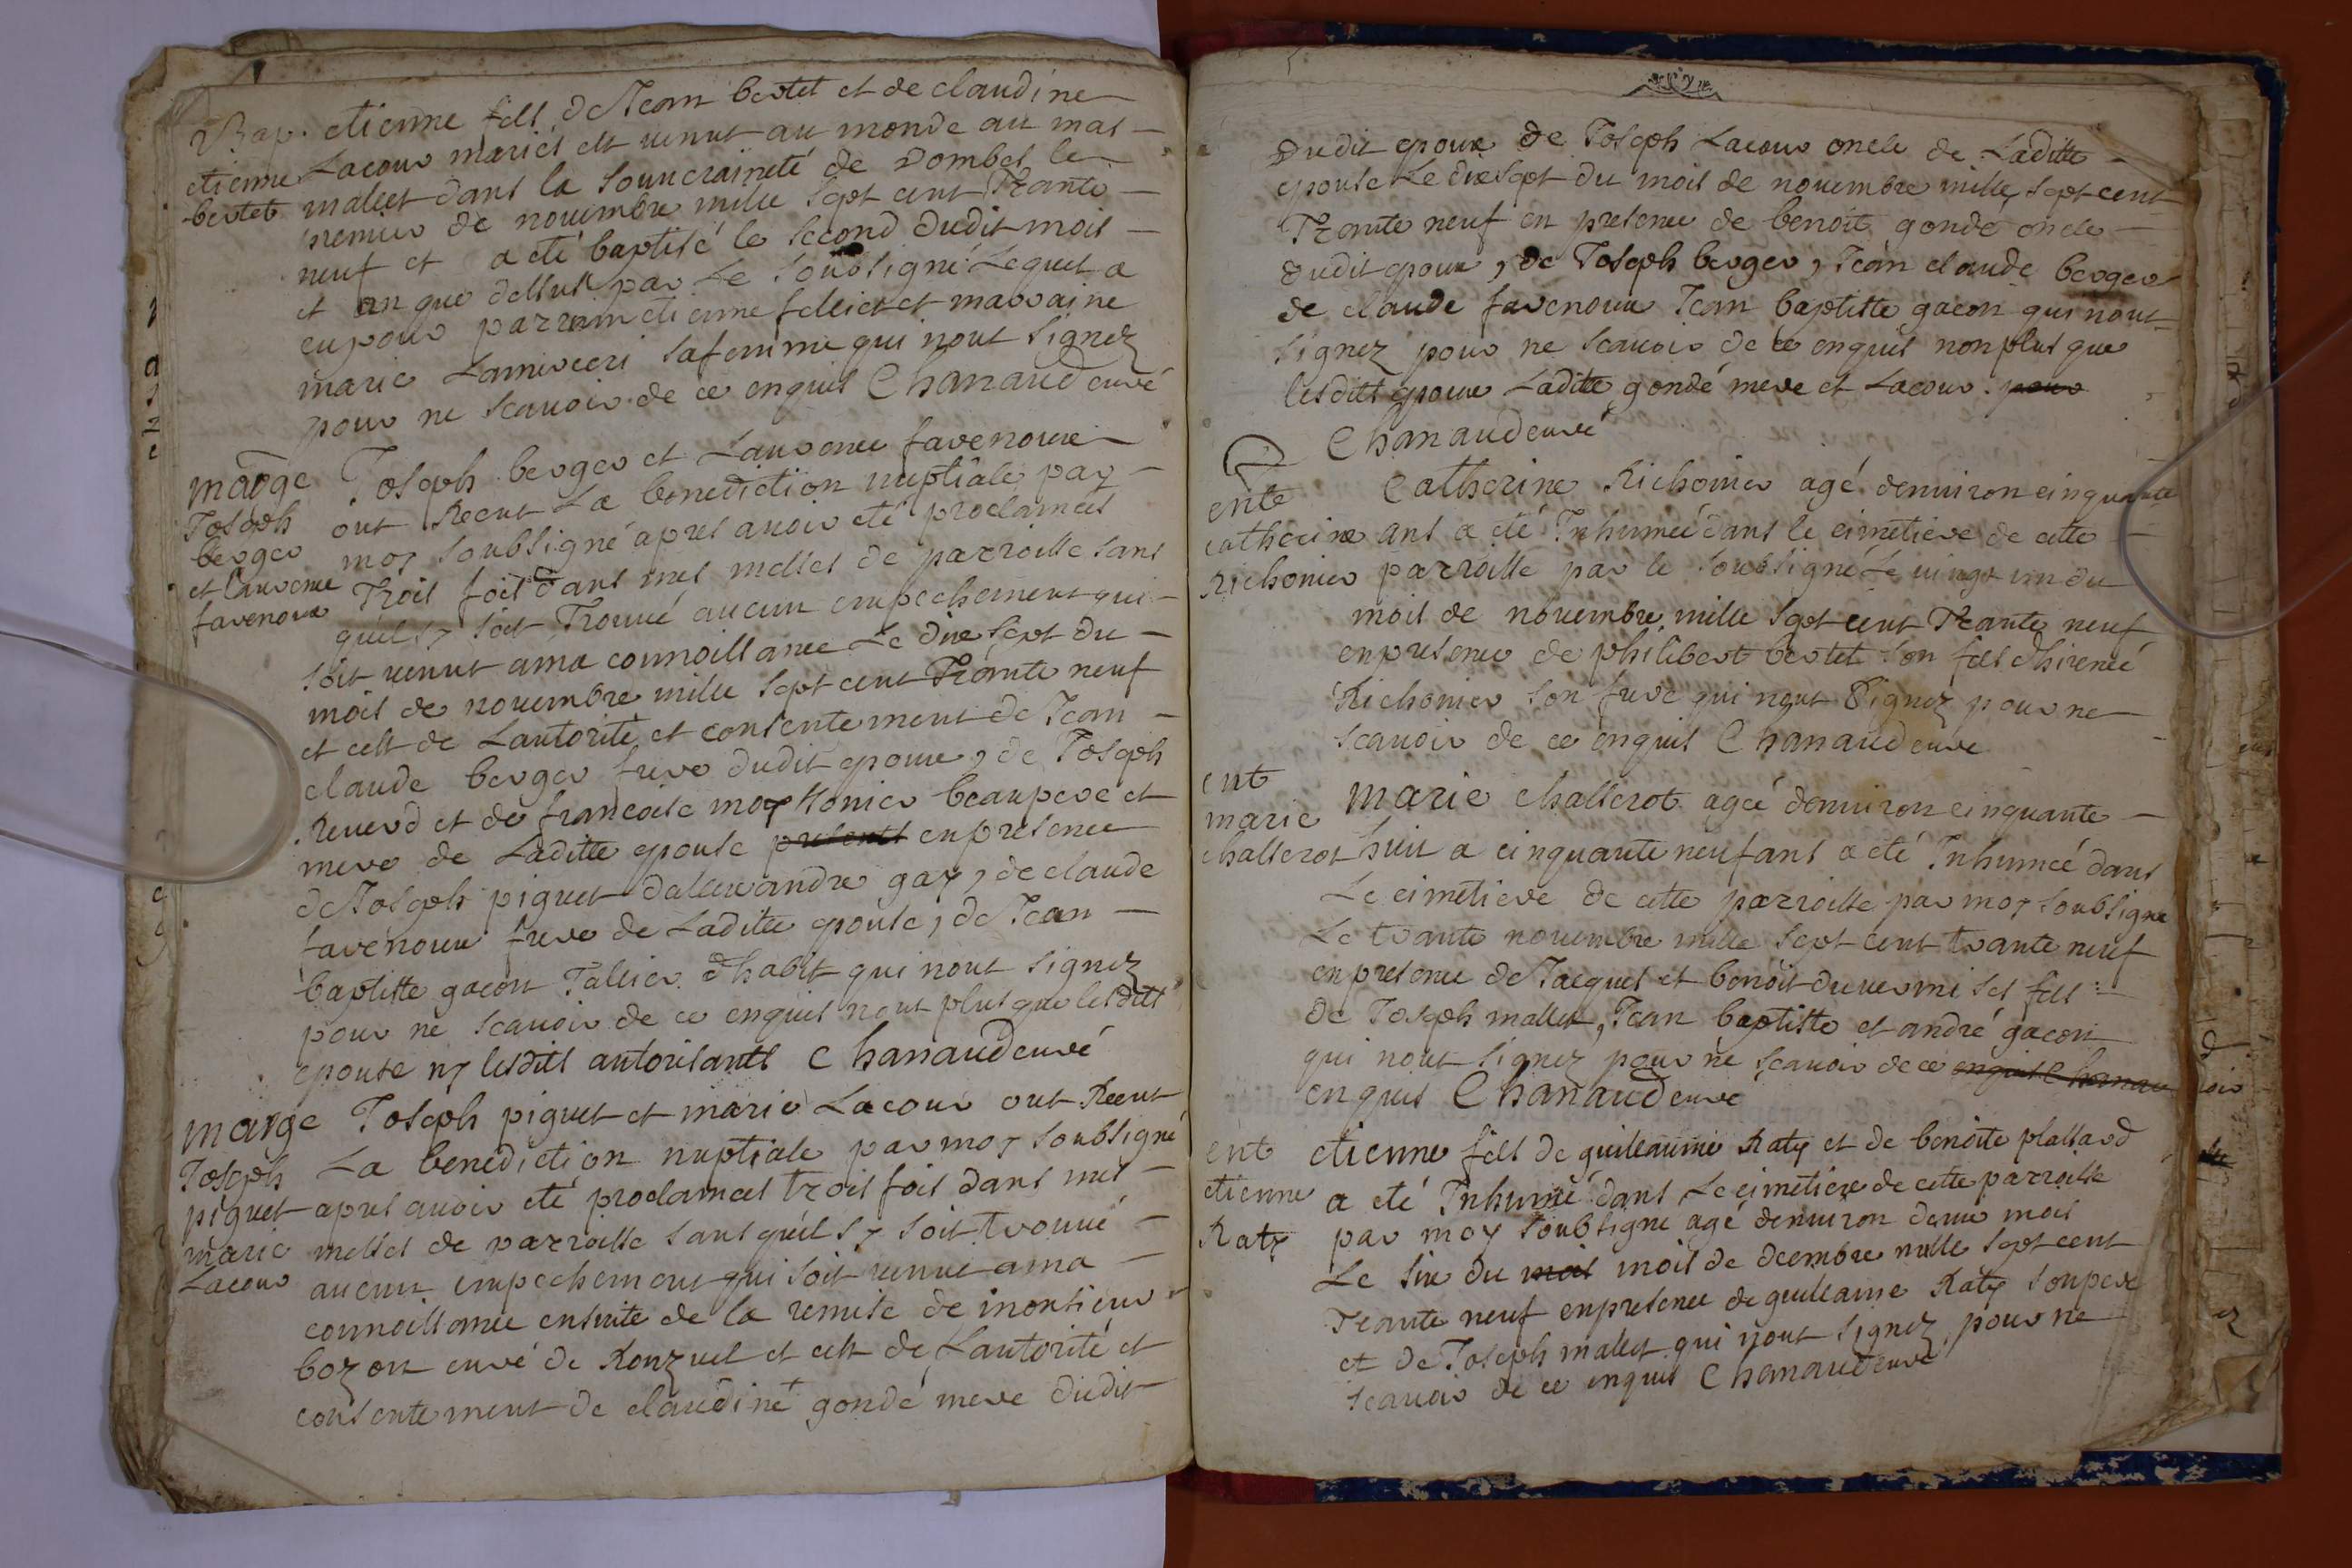 Bap. etienne fils de Jean bertet et de claudine
etienne Lacour mariés est venut au monde au mas
bertet mallet dans la souveraineté de Dombes le
premier de novembre mille sept cent Trante
neuf et a eté baptisé le second dudit mois
et an que dessus par Le soubsigné Lequel a
eu pour parrain etienne fellict et marraine
marie Lamerceri sa femme qui nont signez
pour ne scavoir de ce enquis Chanaud curé
marge Joseph berger et Laurence favenoux
Joseph ont Receut La benediction nuptiale par
berger moy soubsigné apres avoir eté proclamés
et Laurence Trois fois dans mes messes de parroisse sans
favenoux quil sy soit Trouvé aucun empechement qui
soit venut a ma connoissance Le dix sept du
mois de novembre mille sept cent Trante neuf
et cest de Lautorité et consentement de Jean
claude berger frere dudit epoux, de Joseph
Reverd et de francoise moyssonier beaupere et
mere de Laditte epouse presents en presence
de Joseph piquet dalexandre gay, de claude
favenoux frere de Laditte epouse, de Jean
baptiste gacon Tallier dhabit qui nont signez
pour ne scavoir de ce enquis nont plus que lesdits
epouse ny lesdits autorisants Chanaud curé
marge Joseph piquet et marie Lacour ont Receut
Joseph La benediction nuptiale par moy soubsigné
piquet apres avoir eté proclamés trois fois dans mes
marie messes de parroisse sans quil sy soit trouvé
Lacour aucun empechement qui soit venut a ma
connoissance ensuite de la remise de monsieur
bozon curé de Ronzuel et cest de Lautorité et
consentement de claudine gondé mere dudit
Dudit epoux de Joseph Lacour oncle de Laditte
epouse Le dix sept du mois de novembre mille sept cent
Trante neuf en presence de benoit gonde oncle
dudit epoux, de Joseph berger, Jean claude berger
de claude favenoux Jean baptiste gacon qui nont
signez pour ne scavoir de ce enquis non plus que
lesdits epoux Laditte gondé mere et Lacour. pour
Chanaud curé
ente Catherine Richonier agé denviron cinquante
catherine ans a eté Inhumeé dans le cimetiere de cette
Richonier parroisse par le soubsigné Le vingt un du
mois de novembre mille sept cent Trante neuf
en presence de philibert bertet son fils dhireneé
Richonier son frere qui nont signez pour ne
scavoir de ce enquis Chanaud cure
ent marie chasserot ageé denviron cinquante
marie
chasserot huit a cinquante neuf ans a eté Inhumeé dans
Le cimetiere de cette parroisse par moy soubsigne
Le trante novembre mille sept cent trante neuf
en presence de Jacques et benoit duvermi ses fils
de Joseph mallet, Jean baptiste et andré gacon
qui nont signez pour ne scavoir de ce enquis Chanau
enquis Chanaud curé
ent etienne fils de guilleaume Raty et de benoite plassard
etienne a eté Inhumé dans Le cimetiere de cette parroisse
Raty par moy soubsigne agé denviron deux mois
Le six du mois mois de decembre mille sept cent
Trante neuf en presence de guilleaume Raty son pere
et de Joseph mallet qui nont signez pour ne
scavoir de ce enquis Chanaud curé